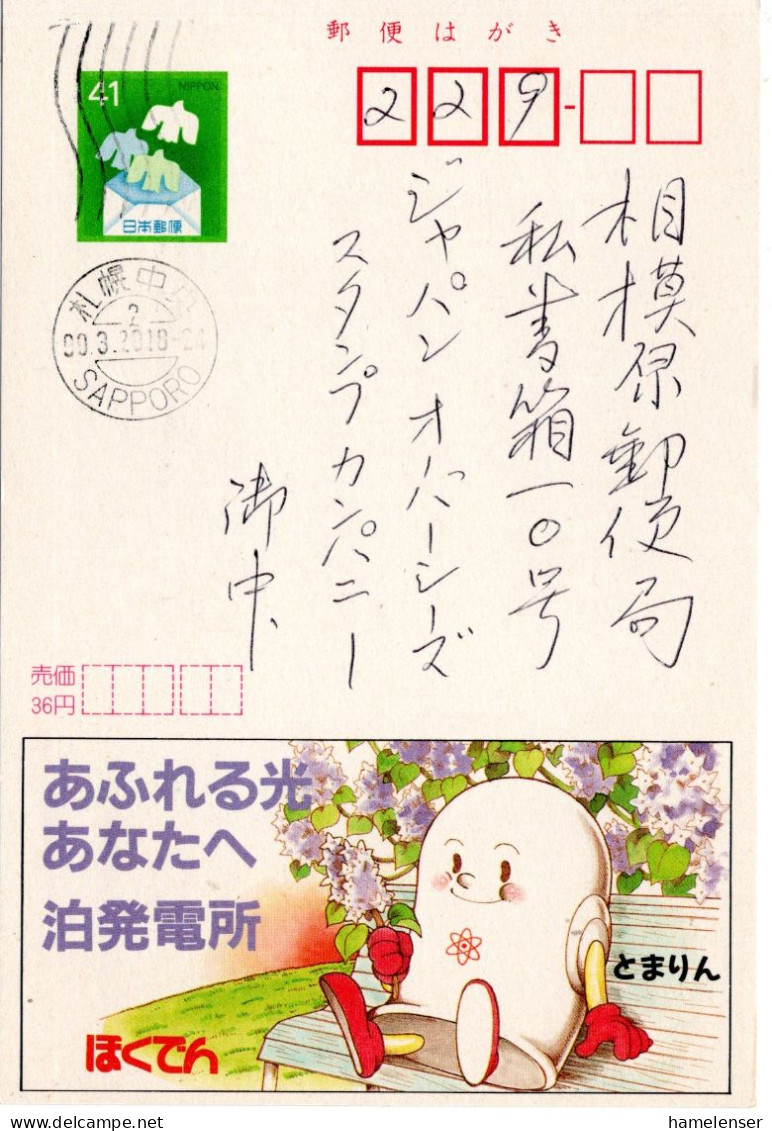 郵便はがき
41
NIPPON
日本郵便
229-
相模原郵便局
私書箱一〇号
ジャパン オーバーシーズ
スタンプ カンパニー
御中、
札幌中央
2
90.3.2018-24
SAPPORO
売価
36円
あふれる光
あなたへ
泊発電所
ほくでん
とまりん
hamelenser